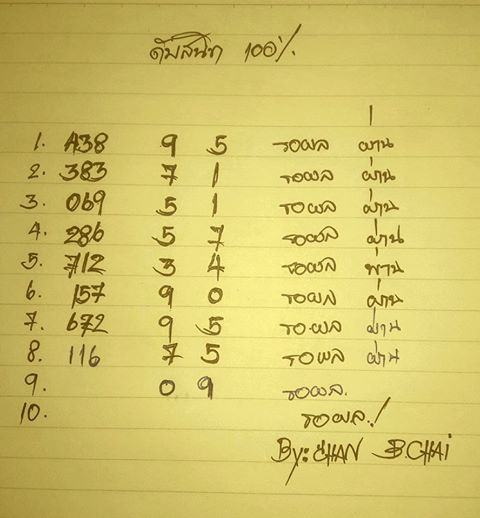 ดับสนิท 100%
1. 438 9 5 รอผล ผ่าน
2. 383 7 1 รอผล ผ่าน
3. 069 5 1 รอผล ผ่าน
4. 286 5 7 รอผล ผ่าน
5. 712 3 4 รอผล ผ่าน
6. 157 9 0 รอผล ผ่าน
7. 672 9 5 รอผล ผ่าน
8. 116 7 5 รอผล ผ่าน
9. 0 9 รอผล.
10. รอผล.!
By: CHAN B.CHAi